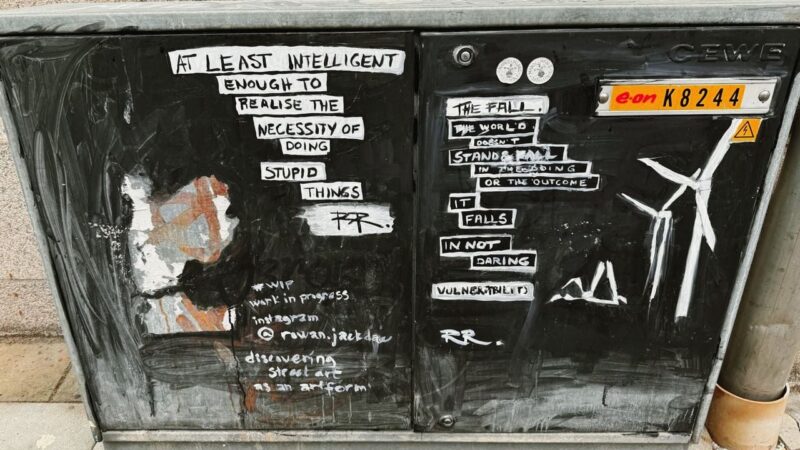 AT LEAST INTELLIGENT
ENOUGH TO
REALISE THE
NECESSITY OF
DOING
STUPID
THINGS
RR.
#WIP
work in progress
instagram
@rowan.jackdaw
discovering
street art
as an artform
CEWE
e·on K8244
THE FALL.
THE WORLD
DOESN'T
STAND & FALL
IN THE DOING
OR THE OUTCOME
IT
FALLS
IN NOT
DARING
VULNERABILITY
RR.